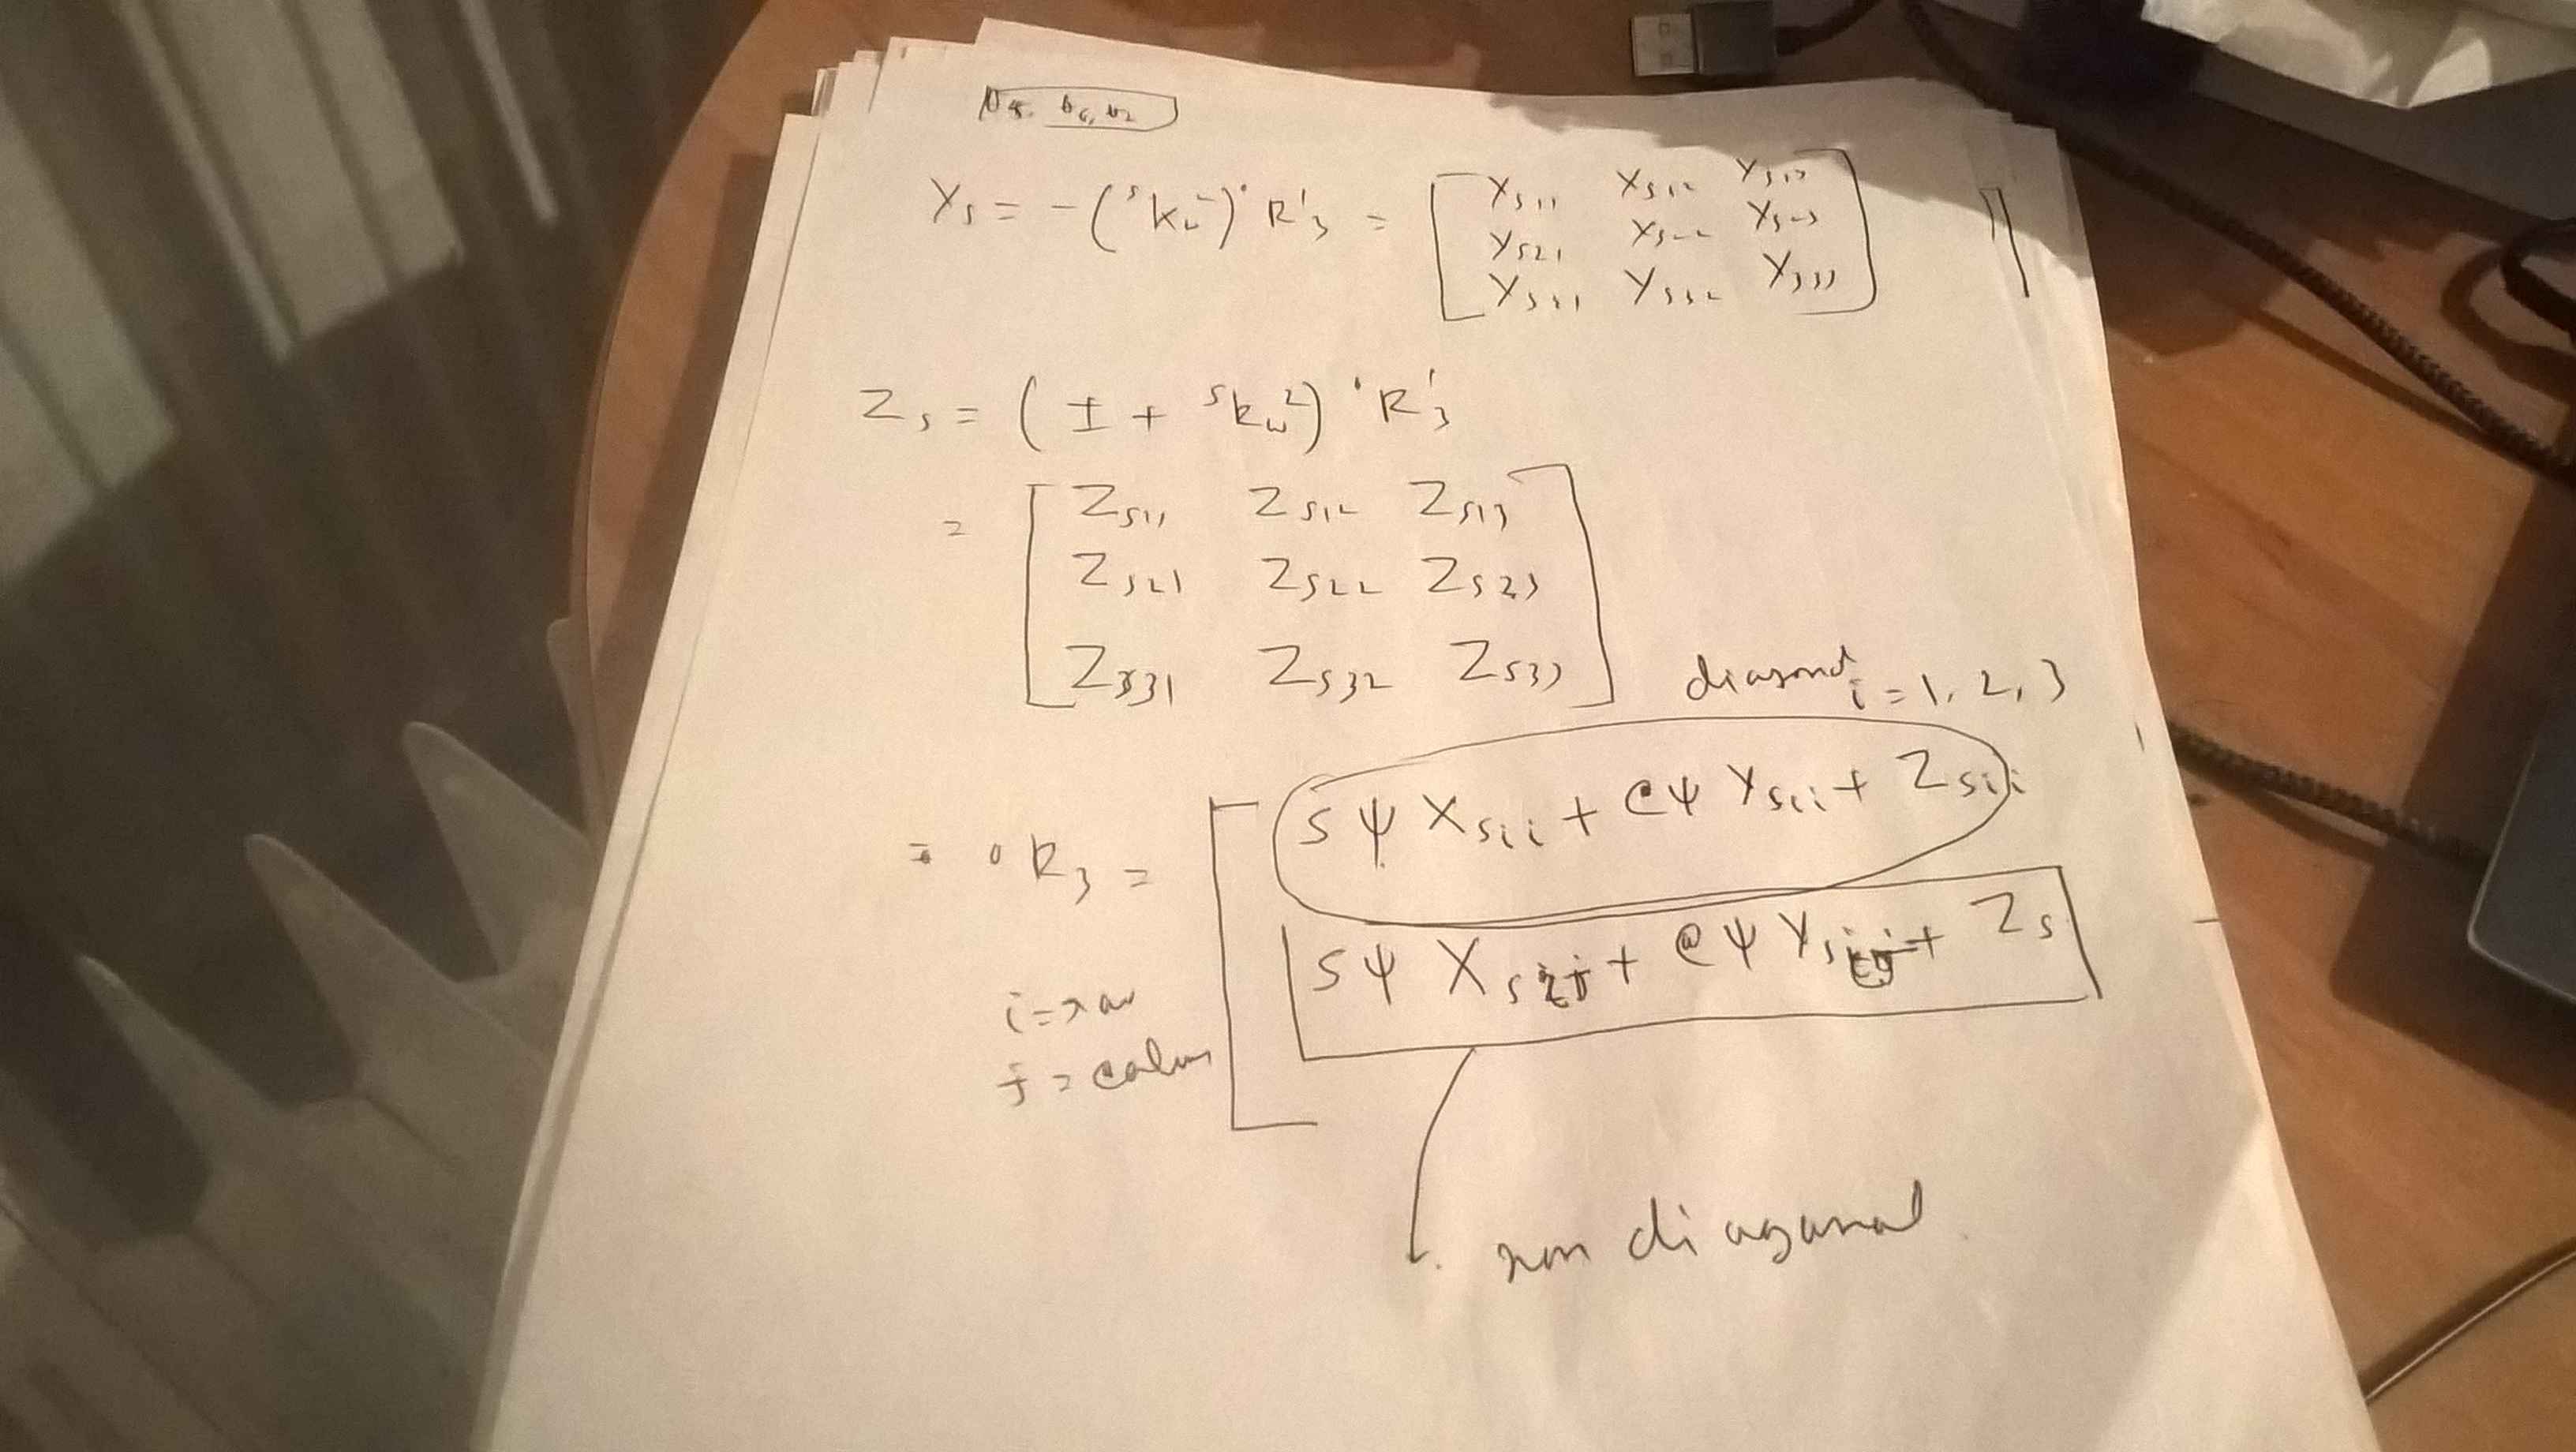 θ5, θ6, θ7
Ys = -(ˢkw²) ⁰R'3 = [Ys11 Ys12 Ys13
Ys21 Ys22 Ys23
Ys31 Ys32 Ys33]
Zs = (I + ˢkw²) ⁰R'3
= [Zs11 Zs12 Zs13
Zs21 Zs22 Zs23
Zs31 Zs32 Zs33]
diagonal i = 1, 2, 3
= ⁰R3 = [sψ Xsii + cψ Ysii + Zsii
sψ Xsij + cψ Ysij + Zs
i = row
j = column
non diagonal